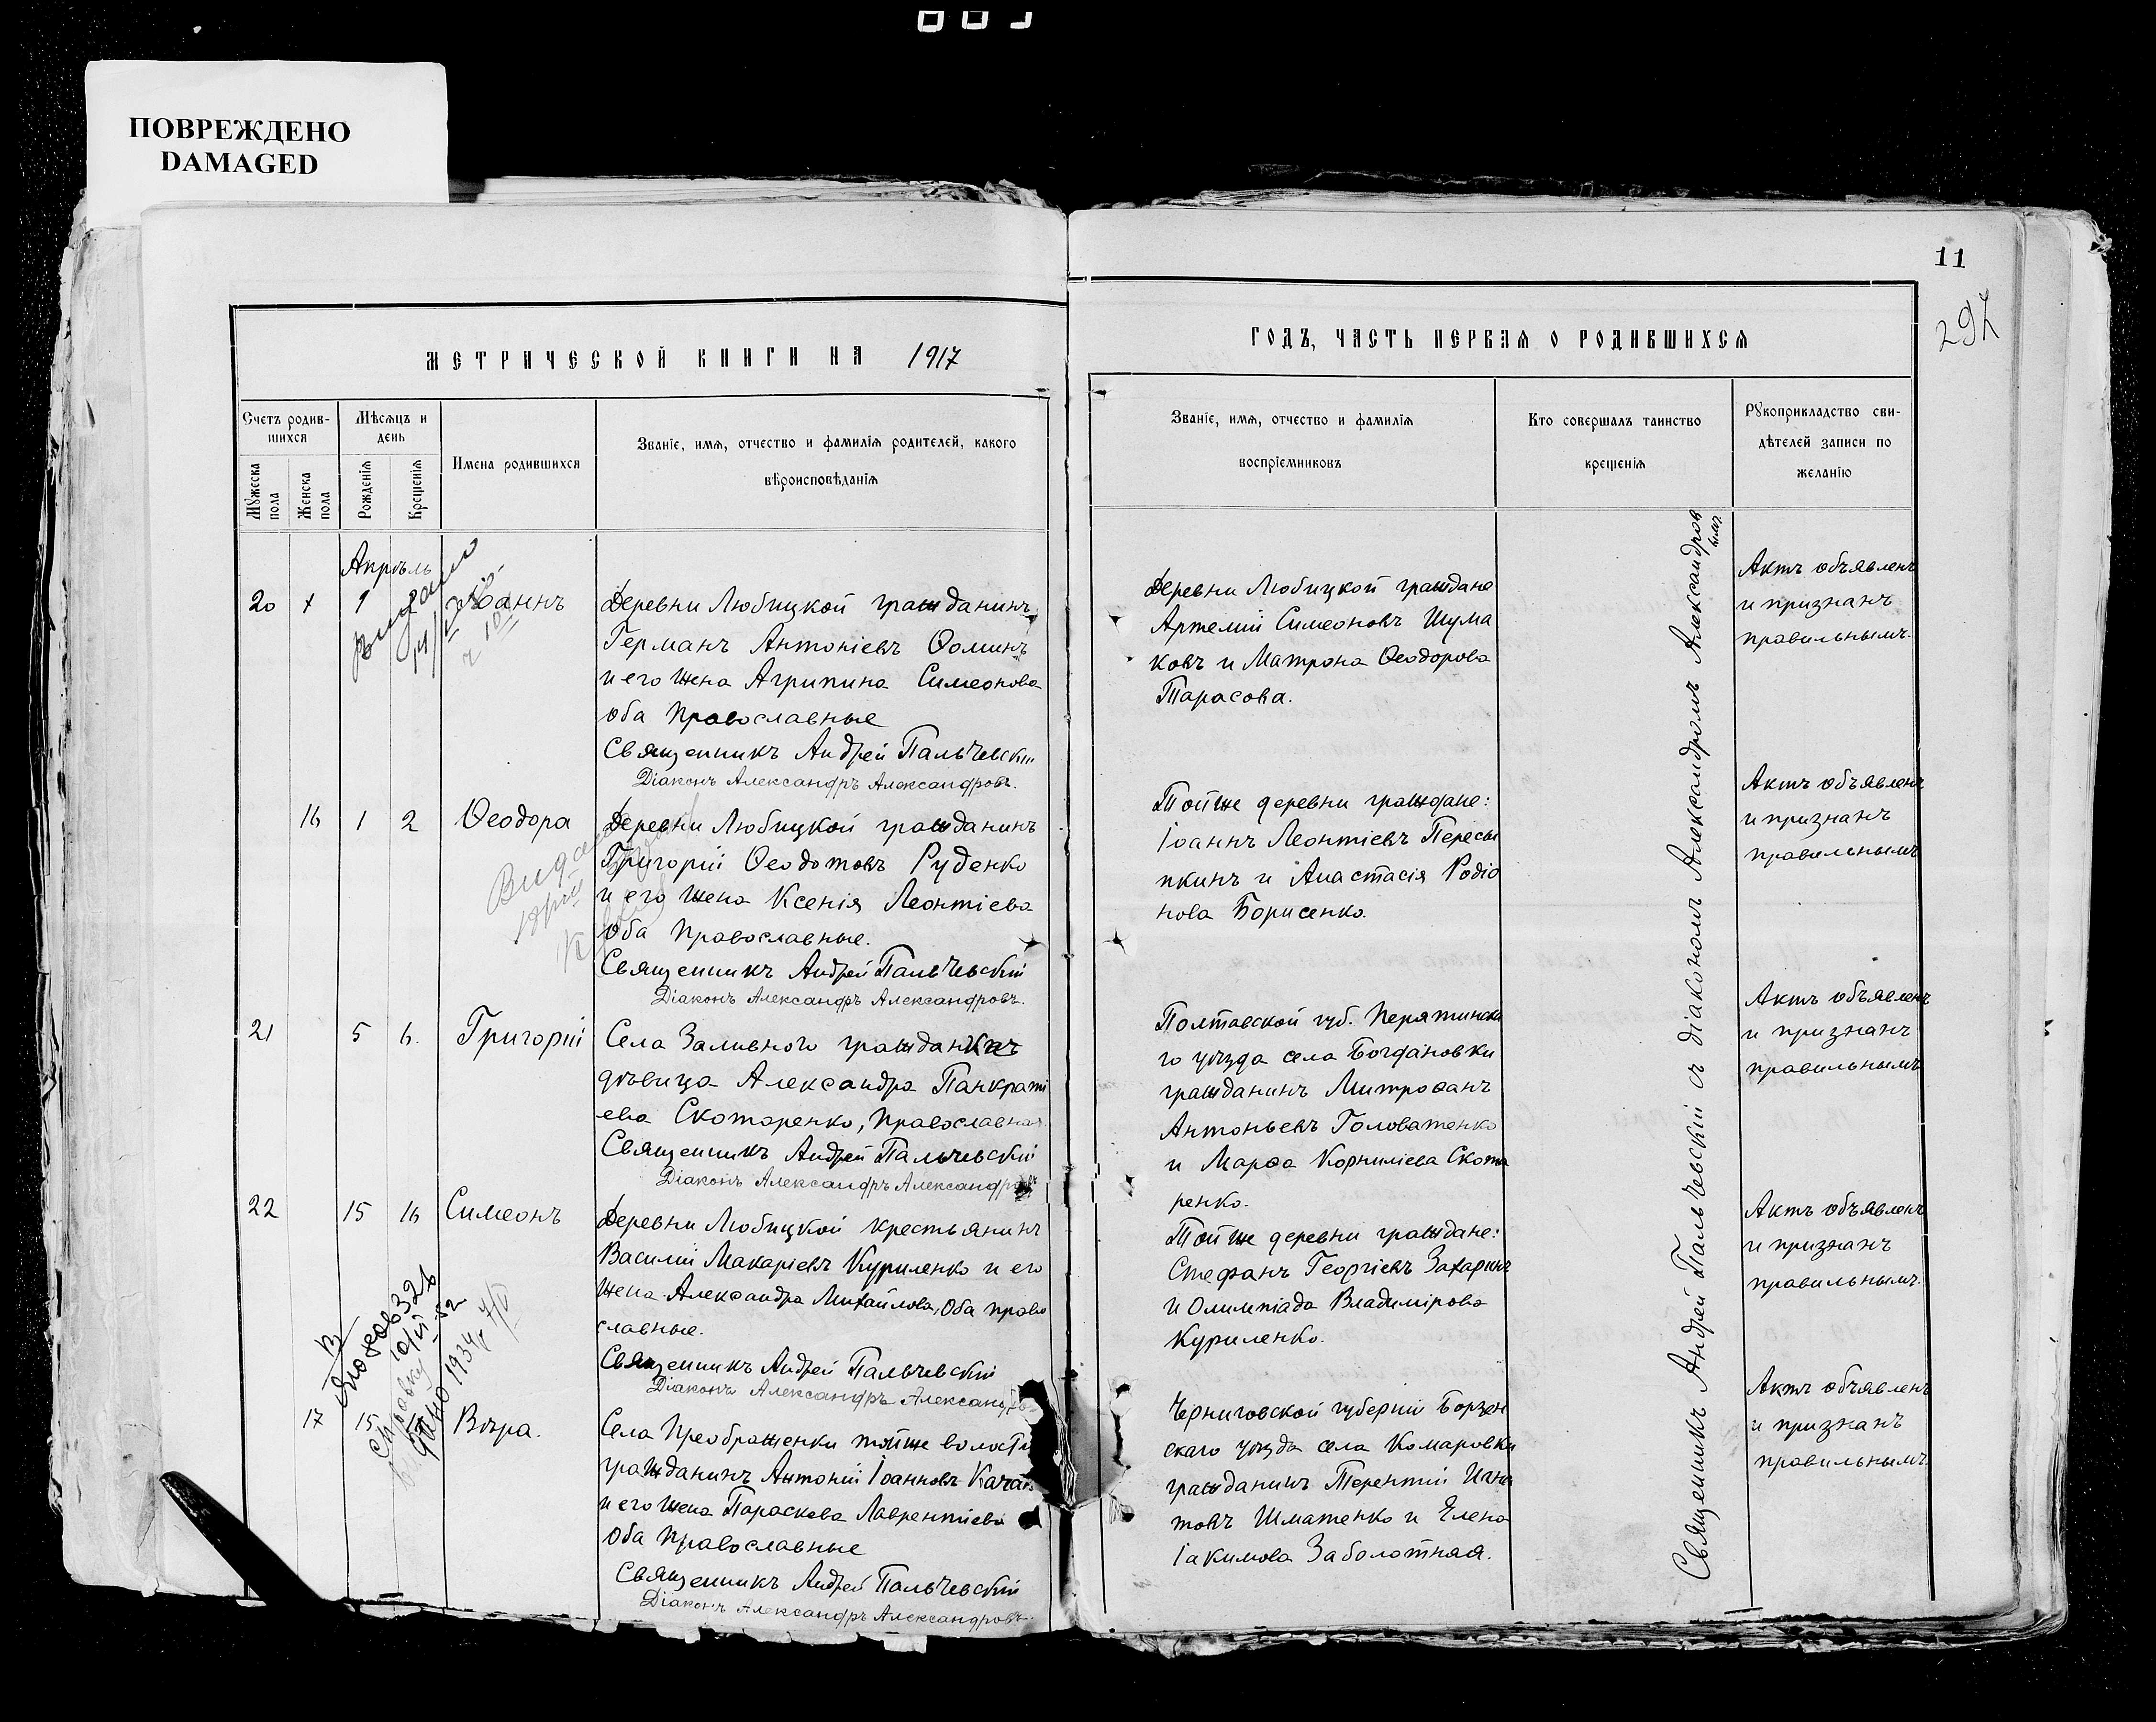 ПОВРЕЖДЕНО
DAMAGED
11
297
МЕТРИЧЕСКОЙ КНИГИ НА 1917
ГОДЪ, ЧАСТЬ ПЕРВАЯ О РОДИВШИХСЯ
Счетъ родив-
шихся
Мужеска
пола
Женска
пола
Мѣсяцъ и
день
Рожденія
Крещенія
Имена родившихся
Званіе, имя, отчество и фамилія родителей, какого
вѣроисповѣданія
Званіе, имя, отчество и фамилія
воспріемниковъ
Кто совершалъ таинство
крещенія
Рукоприкладство сви-
дѣтелей записи по
желанію
Апрѣль
20 1 2 Іоаннъ
Деревни Любицкой гражданинъ
Германъ Антоніевъ Ѳоминъ
и его жена Агрипина Симеонова
оба православные
Священникъ Андрей Пальчевскій
Діаконъ Александръ Александровъ.
Деревни Любицкой граждане
Артемий Симеоновъ Шума
ковъ и Матрона Ѳеодорова
Тарасова.
Актъ объявленъ
и признанъ
правильнымъ.
16 1 2 Ѳеодора
Деревни Любицкой гражданинъ
Григорій Ѳеодотовъ Руденко
и его жена Ксенія Леонтіева
оба православные.
Священникъ Андрей Пальчевскій
Діаконъ Александръ Александровъ.
Той же деревни граждане:
Іоаннъ Леонтіевъ Пересы
пкинъ и Анастасія Родіо
нова Борисенко.
Актъ объявленъ
и признанъ
правильнымъ
21 5 6. Григорій
Села Заливного гражданка
дѣвица Александра Панкраті
ева Скотаренко, православная.
Священникъ Андрей Пальчевскій
Діаконъ Александръ Александровъ
Полтавской губ. Перятинска
го уѣзда села Богдановки
гражданинъ Митрофанъ
Антоньевъ Головатенко
и Марѳа Корниліева Скота
ренко.
Актъ объявленъ
и признанъ
правильнымъ
22 15 16 Симеонъ
Деревни Любицкой крестьянинъ
Василій Макаріевъ Куриленко и его
жена Александра Михайлова, оба право
славные.
Священникъ Андрей Пальчевскій
Діаконъ Александръ Александров
Той же деревни граждане:
Стефанъ Георгіевъ Захаринъ
и Олимпіада Владимірова
Куриленко.
Актъ объявленъ
и признанъ
правильнымъ.
17 15 Вѣра.
Села Преображенки той же волости
гражданинъ Антоній Іоанновъ Качан
и его жена Параскева Лаврентіева
оба православные
Священникъ Андрей Пальчевскій
Діаконъ Александръ Александровъ.
Черниговской губерніи Борзен
скаго уѣзда села Комаровки
гражданинъ Терентій Игна
товъ Шматенко и Елена
Іакимова Заболотная.
Актъ объявленъ
и признанъ
правильнымъ
Священникъ Андрей Пальчевскій съ діакономъ Александромъ Александров
ымъ